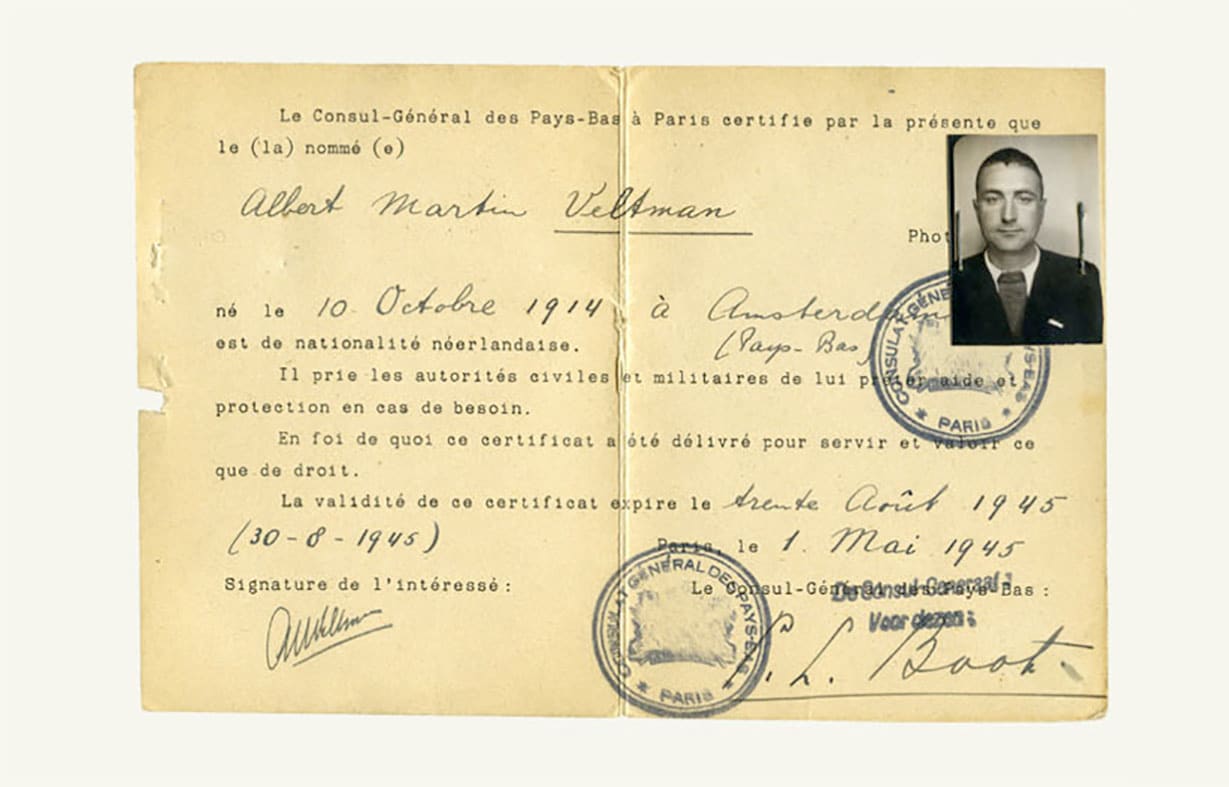 Le Consul-Général des Pays-Bas à Paris certifie par la présente que
le (la) nommé (e)
Albert Martin Veltman
Phot
né le 10 Octobre 1914 à Amsterdam
(Pays-Bas)
est de nationalité néerlandaise.
Il prie les autorités civiles et militaires de lui prêter aide et
protection en cas de besoin.
CONSULAT GÉNÉ YS-BAS
* PARIS *
En foi de quoi ce certificat a été délivré pour servir et valoir ce
que de droit.
La validité de ce certificat expire le trente Août 1945
(30-8-1945)
Paris, le 1. Mai 1945
Signature de l'intéressé:
Le Consul-Général des Pays-Bas:
De Consul-Generaal:
Voor dezen:
CONSULAT GÉNÉRAL DES PAYS-BAS
* PARIS *
AMVeltman
P. L. Boot.